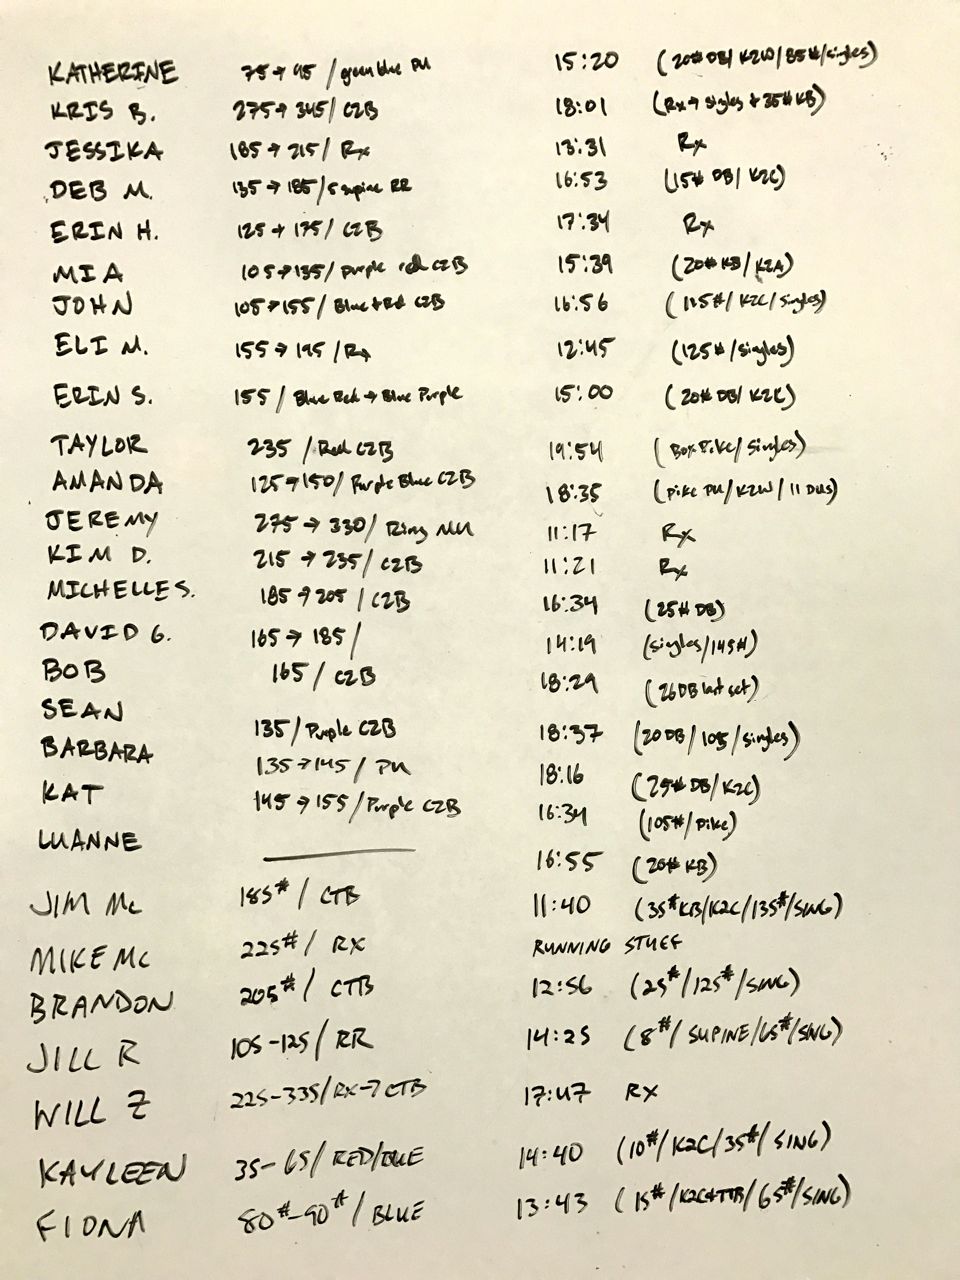 KATHERINE 75→95 / green blue PU 15:20 (20# DB/ K2W/ 85#/singles)
KRIS B. 275→345/ C2B 18:01 (Rx→ singles + 35# KB)
JESSIKA 185→215/ Rx 13:31 Rx
DEB M. 135→185/ supine RR 16:53 (15# DB/ K2C)
ERIN H. 125→175/ C2B 17:34 Rx
MIA 105→135/ purple red C2B 15:39 (20# KB/ K2A)
JOHN 105→155/ Blue+Red C2B 16:56 (115#/ K2C/ singles)
ELI M. 155→195 / Rx 12:45 (125#/singles)
ERIN S. 155 / Blue Red → Blue Purple 15:00 (20# DB/ K2C)
TAYLOR 235 / Red C2B 19:54 (Box Pike/ Singles)
AMANDA 125→150/ Purple Blue C2B 18:35 (Pike PU/ K2W / 11 DUs)
JEREMY 275→330/ Ring MU 11:17 Rx
KIM D. 215→235/ C2B 11:21 Rx
MICHELLE S. 185→205 / C2B 16:34 (25# DB)
DAVID G. 165→185/ 14:19 (singles/145#)
BOB 165/ C2B 18:29 (26DB last set)
SEAN 135/ Purple C2B 18:37 (20DB/ 105/singles)
BARBARA 135→145 / PU 18:16 (25# DB/ K2C)
KAT 145→155/Purple C2B 16:34 (105#/ pike)
LUANNE 16:55 (20# KB)
JIM Mc 185# / CTB 11:40 (35# KB/K2C/135#/SING)
MIKE Mc 225# / RX RUNNING STUFF
BRANDON 205# / CTB 12:56 (25#/125#/SING)
JILL R 105-125/ RR 14:25 (8#/ SUPINE/65#/SING)
WILL Z 225-335/RX→CTB 17:47 RX
KAYLEEN 35-65/ RED/BLUE 14:40 (10#/K2C/35#/ SING)
FIONA 80#-90# / BLUE 13:43 (15#/K2C+TTB/65#/SING)